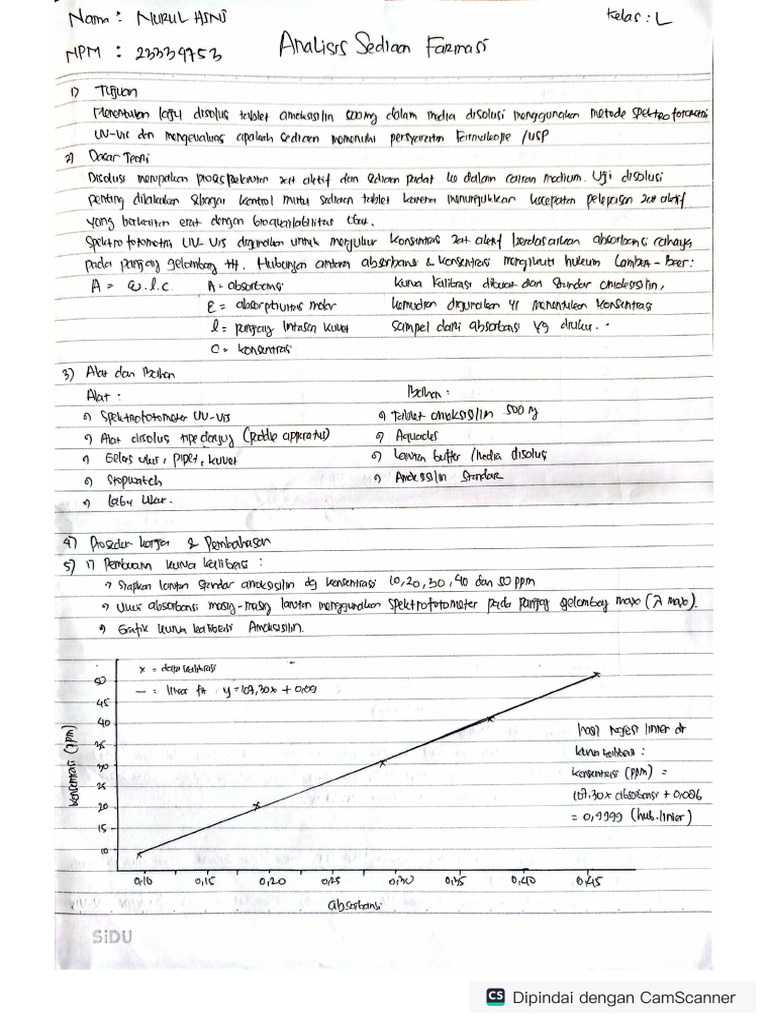 Nama : NURUL HSNI
Kelas : L
NPM : 23334753
Analisis Sediaan Farmasi
1) Tujuan
Menentukan laju disolusi tablet amoksisilin 500mg dalam media disolusi menggunakan metode spektrofotometri
UV-Vis dan mengevaluasi apakah sediaan memenuhi persyaratan Farmakope /USP
2) Dasar Teori
Disolusi merupakan proses pelarutan zat aktif dari sediaan padat ke dalam cairan medium. Uji disolusi
penting dilakukan sebagai kontrol mutu sediaan tablet karena menunjukkan kecepatan pelepasan zat aktif
yang berkaitan erat dengan bioavailabilitas obat.
Spektrofotometri UV-Vis digunakan untuk mengukur konsentrasi zat aktif berdasarkan absorbansi cahaya
pada panjang gelombang ttt. Hubungan antara absorbans & konsentrasi mengikuti hukum Lambert-Beer:
A = ε.l.c. A = absorbansi kurva kalibrasi dibuat dari standar amoksisilin,
ε = absorptivitas molar kemudian digunakan u/ menentukan konsentrasi
l = panjang lintasan kuvet sampel dari absorbansi yg diukur.
C = konsentrasi
3) Alat dan Bahan
Alat : Bahan :
Spektrofotometer UV-Vis Tablet amoksisilin 500 mg
Alat disolusi tipe dayung (paddle apparatus) Aquades
Gelas ukur, pipet, kuvet Larutan buffer /media disolusi
Stopwatch Amoksisilin Standar
Labu Ukur.
4) Prosedur kerja & Pembahasan
5) 1) Pembuatan kurva kalibrasi :
Siapkan larutan standar amoksisilin dg konsentrasi 10, 20, 30, 40 dan 50 ppm
Ukur absorbansi masing-masing larutan menggunakan spektrofotometer pada panjang gelombang maxo (λ maxo).
Grafik kurva kalibrasi Amoksisilin.
x = data kalibrasi
— : linier fit : y = 107,30x + 0,09
50
45
40
35
30
25
20
15
10
konsentrasi (ppm)
hasil regresi linier dr
kurva kalibrasi :
konsentrasi (ppm) =
107.30 x absorbansi + 0,086
= 0,9999 (hub.linier)
0,10 0,15 0,20 0,25 0,30 0,35 0,40 0,45
absorbansi
SiDU
CS Dipindai dengan CamScanner